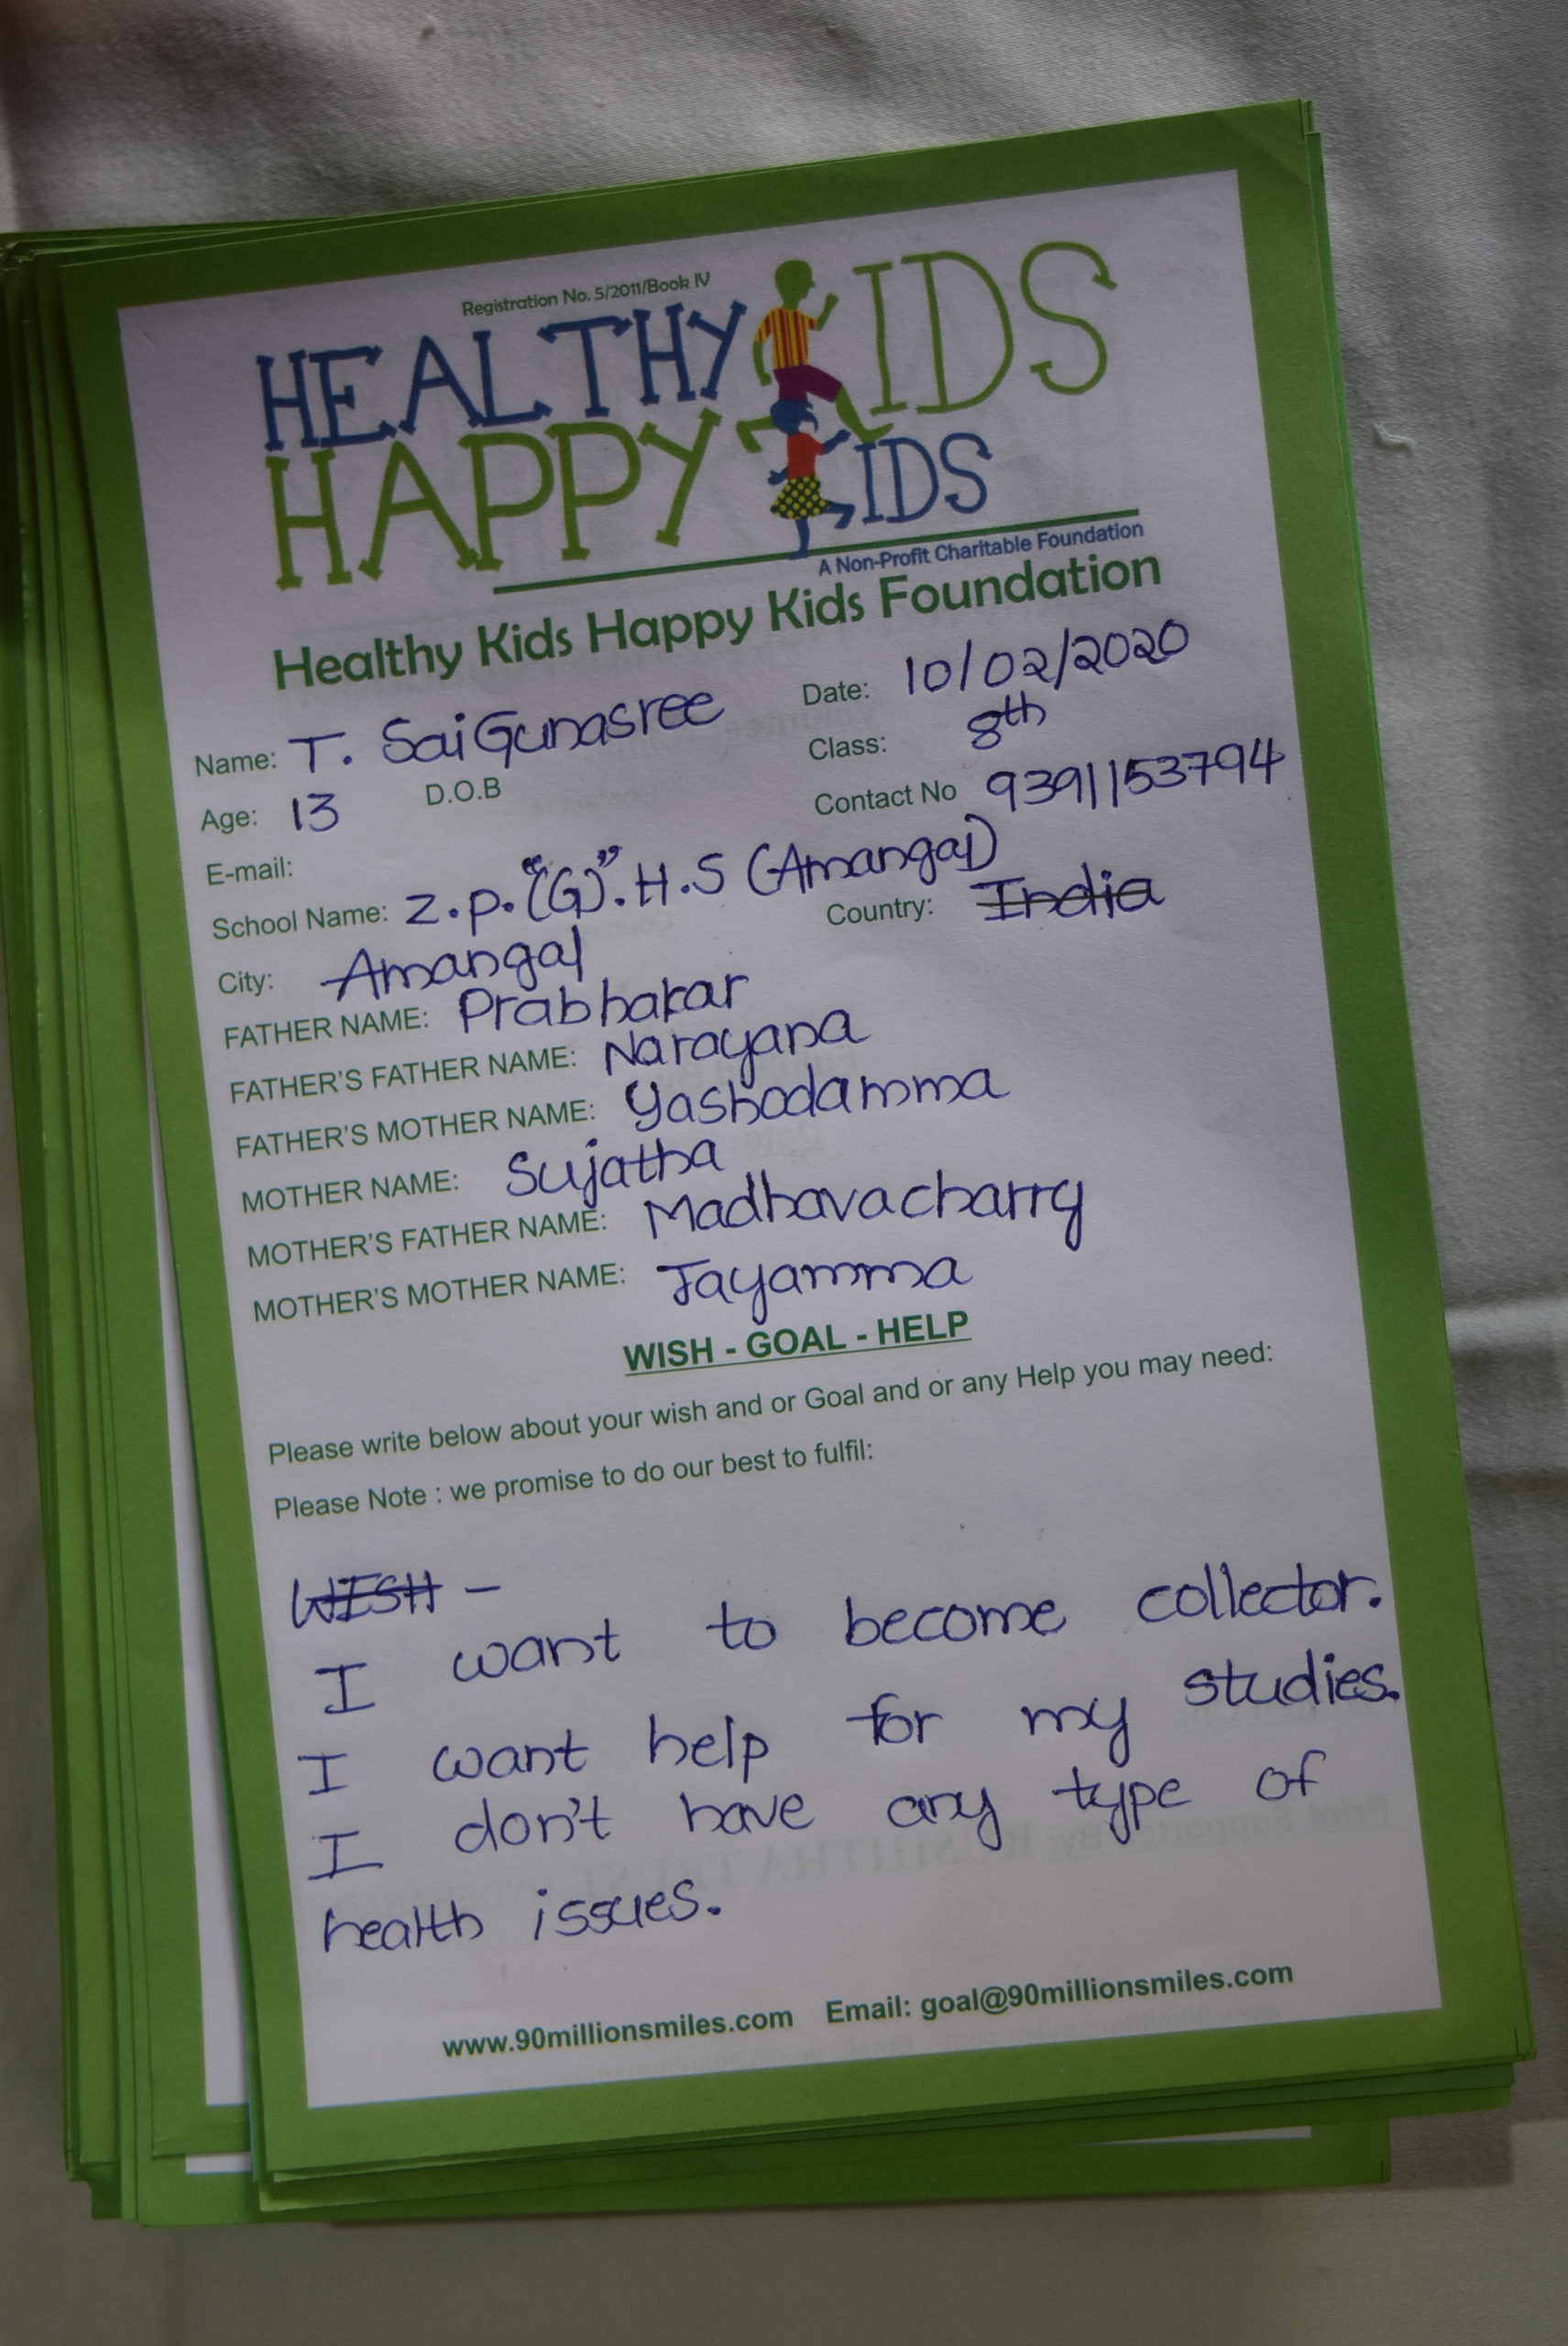 Registration No. 5/2011/Book IV
HEALTHY KIDS
HAPPY KIDS
A Non-Profit Charitable Foundation
Healthy Kids Happy Kids Foundation
Name: T. Sai Gunasree Date: 10/02/2020
Class: 8th
Age: 13 D.O.B Contact No 9391153794
E-mail:
School Name: Z.P."(G)".H.S (Amangal)
City: Amangal Country: India
FATHER NAME: Prabhakar
FATHER'S FATHER NAME: Narayana
FATHER'S MOTHER NAME: Yashodamma
MOTHER NAME: Sujatha
MOTHER'S FATHER NAME: Madhavacharry
MOTHER'S MOTHER NAME: Jayamma
WISH - GOAL - HELP
Please write below about your wish and or Goal and or any Help you may need:
Please Note : we promise to do our best to fulfil:
WISH -
I want to become collector.
I want help for my studies.
I don't have any type of
health issues.
www.90millionsmiles.com Email: goal@90millionsmiles.com